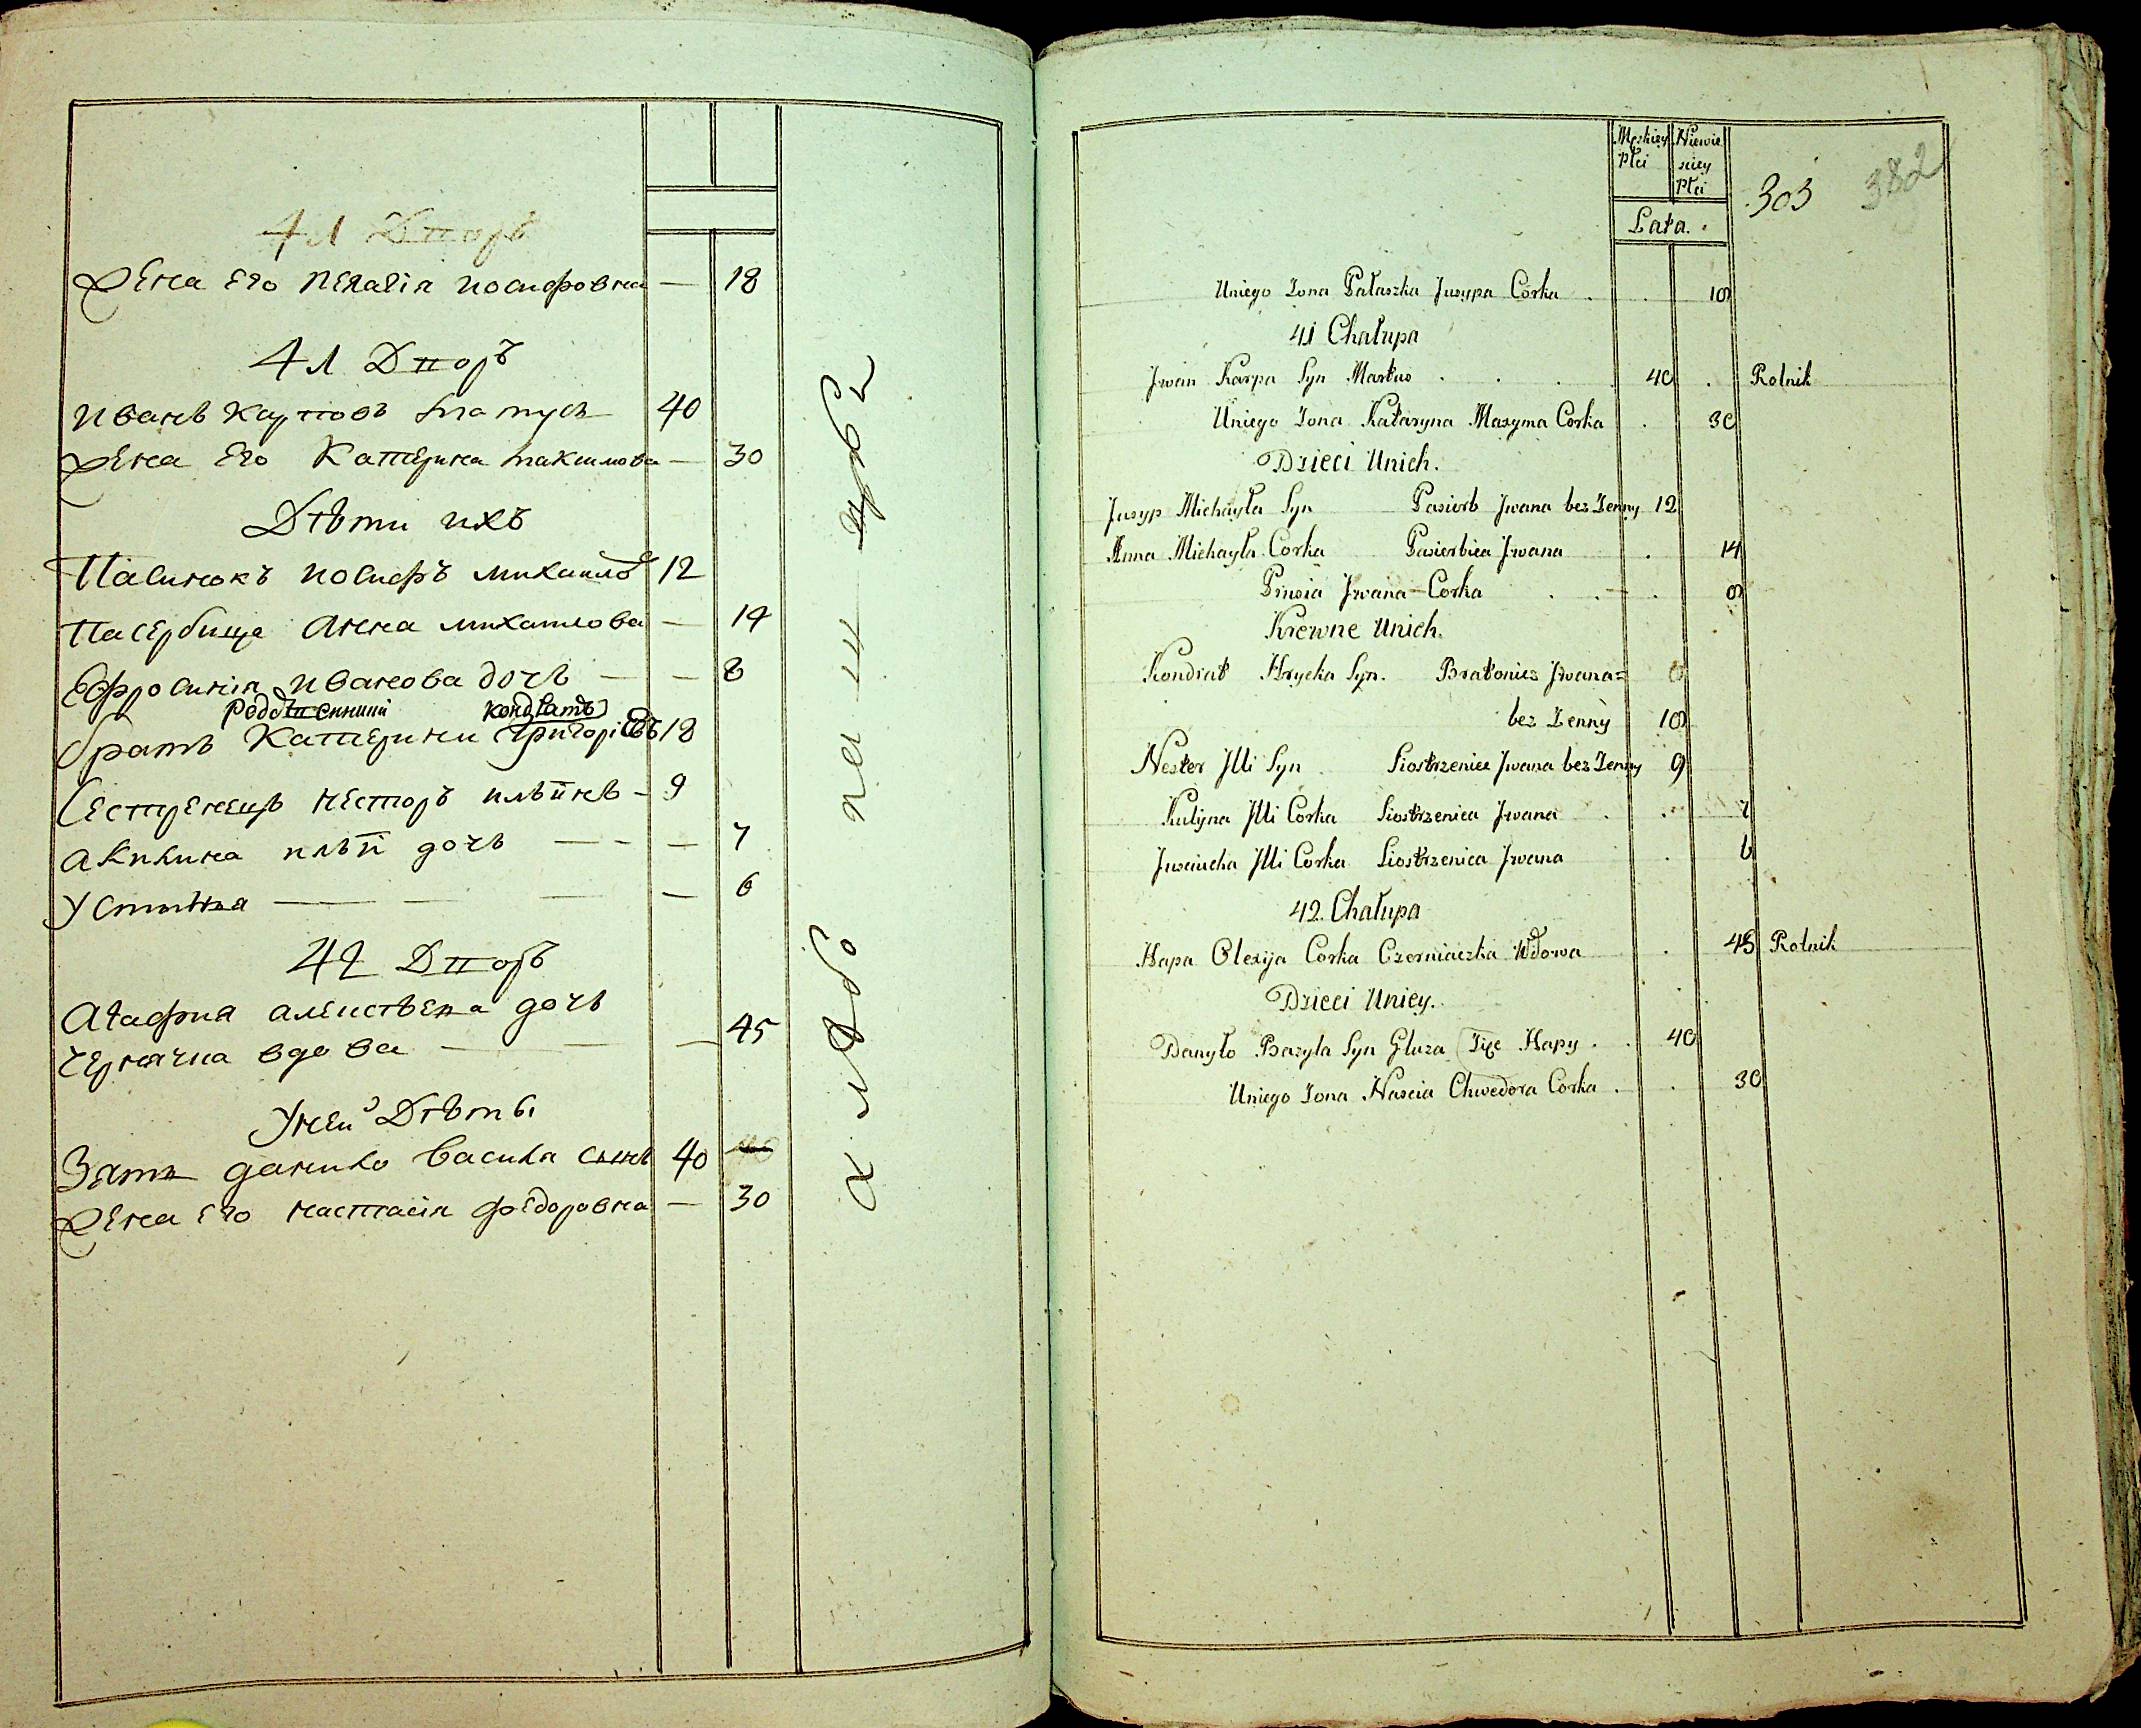 41 Дворъ
Жена Его Пелагія Иосифовна — 18
41 Дворъ
Иванъ Карповъ 40
Жена Его Катерина Максимова — 30
Дѣти ихъ
Пасинокъ Иосифъ Михаилов 12
Пасербица Анна Михаилова — 14
Ефросинія Иванова дочь — — 8
Родственний Кондратъ
братъ Катерини Григоріевъ 18
Сестренецъ Несторъ Ильинъ — 9
Акилина Ильи дочь — — — 7
Устинъа — — — — 6
42 Дворъ
Агафия Алексѣева дочь
Чернячка вдова — — — 45
У неи Дѣти
Зять Данило Василя синъ 40
Жена Его Настасія Федоровна — 30
Męskiey Płci
Niewieściey Płci
303
382
Lata.
Uniego Zona Pałaszka Jusypa Corka . . 18
41 Chałupa
Jwan Karpa Syn . . . 40 . Rolnik
Uniego Zona Kataryna Maxyma Corka . 30
Dzieci Unich.
Jusyp Michayła Syn Pasierb Jwana bez Zenny 12
Anna Michayła Corka Pasierbica Jwana . 14
Prusia Jwana Corka . . — . 8
Krewne Unich.
Kondrat Hrycka Syn. Bratoniez Jwana=
bez Zenny 18
Nester Jlli Syn Siostrzeniec Jwana bez Zenny 9
Kulyna Jlli Corka Siostrzenica Jwana . . 7
Jlli Corka Siostrzenica Jwana . 6
42. Chałupa
Hapa Olexija Corka Czerniaczka Wdowa . 45 Rolnik
Dzieci Uniey.
Danyło Bazyla Syn Gluza Zięc Hapy . . 40
Uniego Zona Nascia Chwedora Corka . . 30